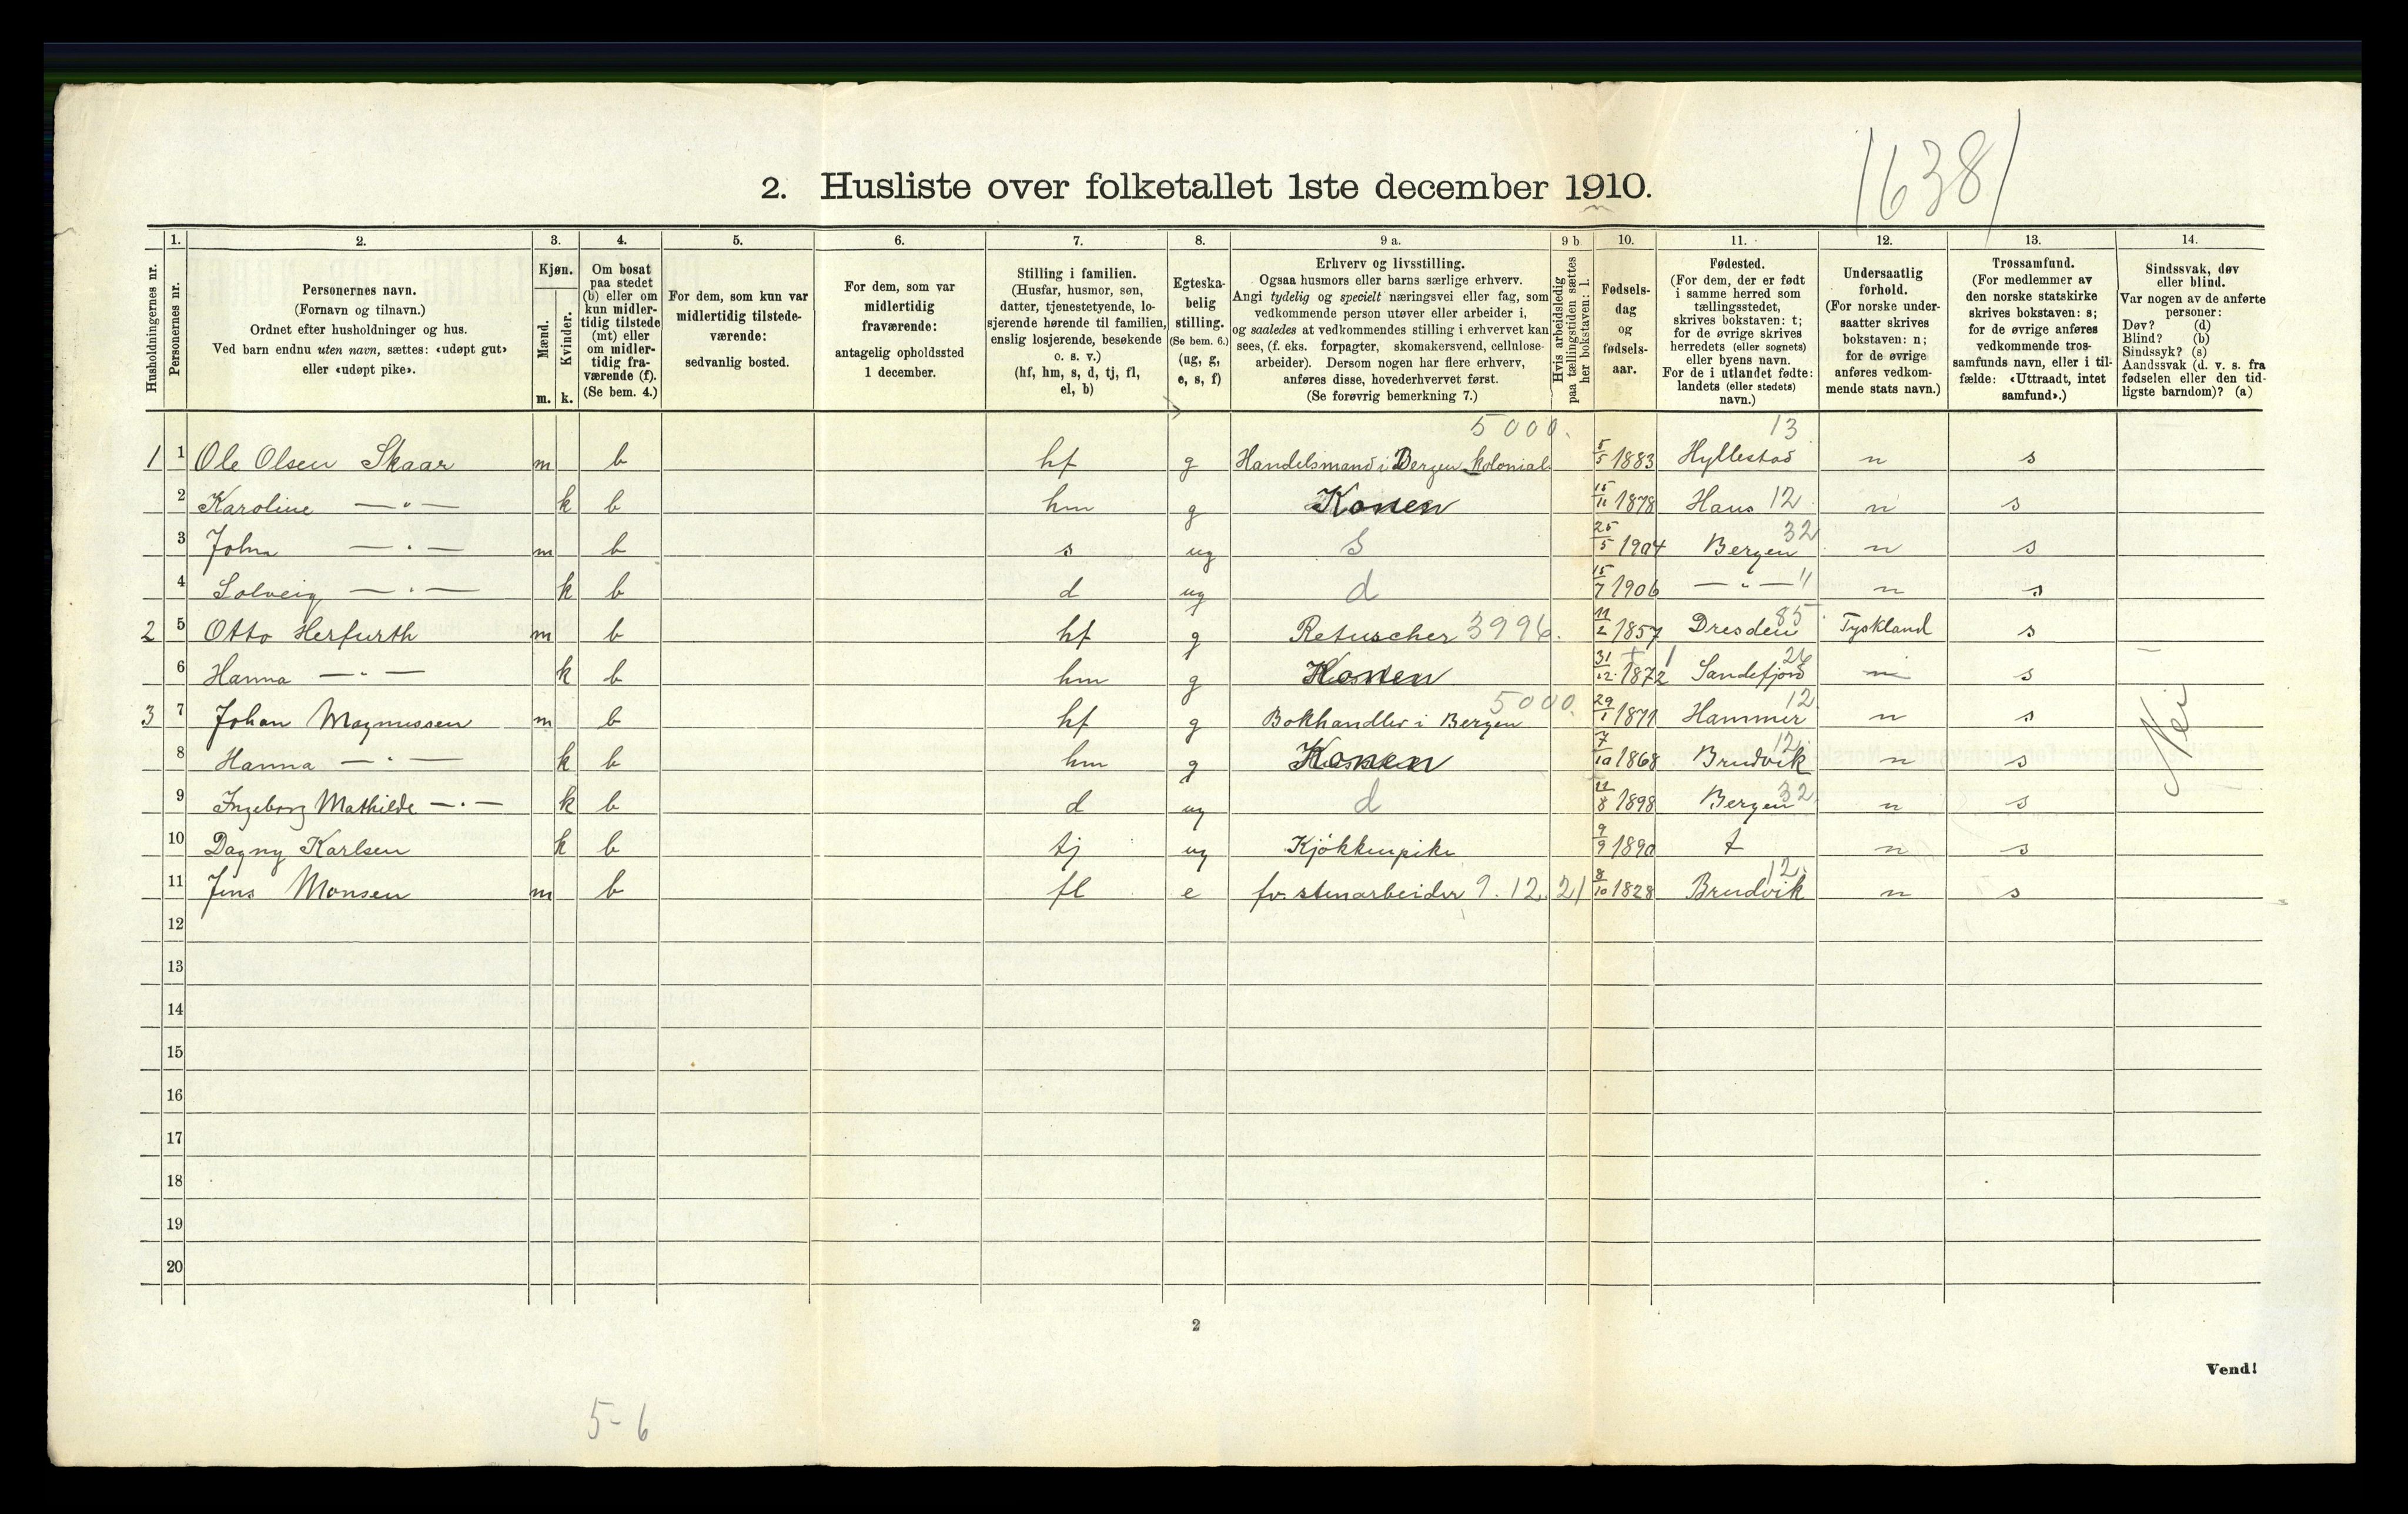 1638
2. Husliste over folketallet 1ste december 1910.
1. 2. 3. 4. 5. 6. 7. 8. 9 a. 9 b. 10. 11. 12. 13. 14.
Husholdningernes nr.
Personernes nr.
Personernes navn.
(Fornavn og tilnavn.)
Ordnet efter husholdninger og hus.
Ved barn endnu uten navn, sættes: «udøpt gut»
eller «udøpt pike».
Kjøn.
Mænd.
Kvinder.
m. k.
Om bosat
paa stedet
(b) eller om
kun midler-
tidig tilstede
(mt) eller
om midler-
tidig fra-
værende (f).
(Se bem. 4.)
For dem, som kun var
midlertidig tilstede-
værende:
sedvanlig bosted.
For dem, som var
midlertidig
fraværende:
antagelig opholdssted
1 december.
Stilling i familien.
(Husfar, husmor, søn,
datter, tjenestetyende, lo-
sjerende hørende til familien,
enslig losjerende, besøkende
o. s. v.)
(hf, hm, s, d, tj, fl,
el, b)
Egteska-
belig
stilling.
(Se bem. 6.)
(ug, g,
e, s, f)
Erhverv og livsstilling.
Ogsaa husmors eller barns særlige erhverv.
Angi tydelig og specielt næringsvei eller fag, som
vedkommende person utøver eller arbeider i,
og saaledes at vedkommendes stilling i erhvervet kan
sees, (f. eks. forpagter, skomakersvend, cellulose-
arbeider). Dersom nogen har flere erhverv,
anføres disse, hovederhvervet først.
(Se forøvrig bemerkning 7.)
Hvis arbeidsledig
paa tællingstiden sættes
her bokstaven: l.
Fødsels-
dag
og
fødsels-
aar.
Fødested.
(For dem, der er født
i samme herred som
tællingsstedet,
skrives bokstaven: t;
for de øvrige skrives
herredets (eller sognets)
eller byens navn.
For de i utlandet fødte:
landets (eller stedets)
navn.)
Undersaatlig
forhold.
(For norske under-
saatter skrives
bokstaven: n;
for de øvrige
anføres vedkom-
mende stats navn.)
Trossamfund.
(For medlemmer av
den norske statskirke
skrives bokstaven: s;
for de øvrige anføres
vedkommende tros-
samfunds navn, eller i til-
fælde: «Uttraadt, intet
samfund».)
Sindssvak, døv
eller blind.
Var nogen av de anførte
personer:
Døv? (d)
Blind? (b)
Sindssyk? (s)
Aandssvak (d. v. s. fra
fødselen eller den tid-
ligste barndom)? (a)
5000. 13
1 1 Ole Olsen Skaar m b hf g Handelsmand i Bergen kolonial 5/5 1883 Hyllestad n s
2 Karoline —"— k b hm g Konen 15/11 1878 Haus 12 n s
3 John —"— m b s ug s 25/5 1904 Bergen 32 n s
4 Solveig —"— k b d ug d 15/7 1906 —"— " n s
2 5 Otto Herfurth m b hf g Retuscher 3996. 11/2 1857 Dresden 85 Tyskland s
6 Hanna —"— k b hm g Konen 31/12 1872 Sandefjord 26 n s
3 7 Johan Magnussen m b hf g Bokhandler i Bergen 5000. 29/1 1871 Hammer 12 n s
8 Hanna —"— k b hm g Konen 7/10 1868 Brudvik 12 n s
9 Ingeborg Mathilde —"— k b d ug d 11/8 1898 Bergen 32 n s
10 Dagny Karlsen k b tj ug Kjøkkenpike 9/9 1890 t n s
11 Jens Monsen m b fl e fv. stenarbeider 9.12.21 8/10 1828 Brudvik 12. n s
Nei
12
13
14
15
16
17
18
19
20
2
Vend!
5-6